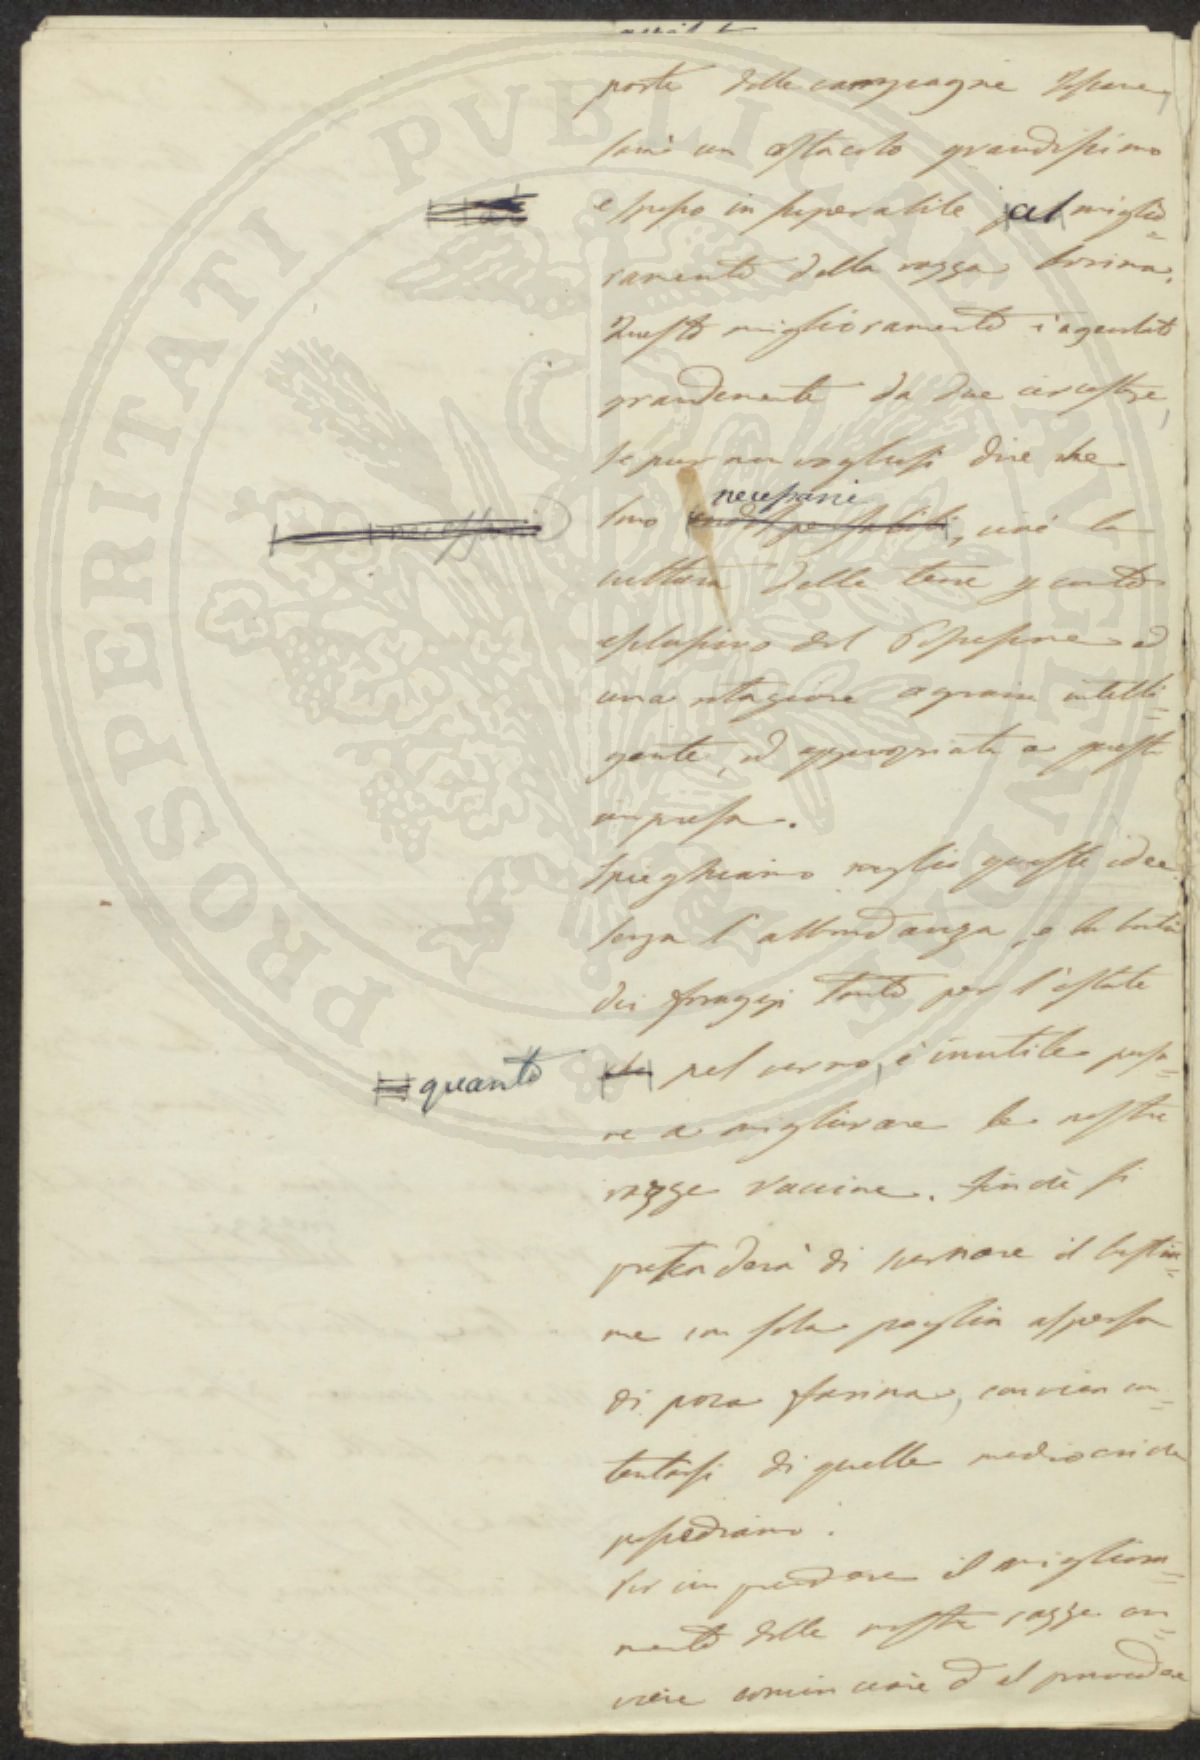 parte delle campagne Toscane,
sarà un ostacolo grandissimo
e spesso insuperabile al miglio=
ramento della razza bovina.
Questo miglioramento è agevolato
grandemente da due circostze,
se pur non vogliasi dire che
necessarie
sono indispensabili, cioè la
cultura delle terre p conto
esclusivo del Possessore ed
una rotazione agraria intelli=
gente, ed appropriata a questa
impresa.
Spieghiamo meglio queste idee
senza l'abbondanza, e la bontà
dei foraggi tanto per l'estate
quanto
che pel verno, è inutile pensa=
re a migliorare le nostre
razze vaccine. Finchè si
pretenderà di svernare il bestia=
me con sola paglia aspersa
di poca farina, convien con=
tentarsi di quelle mediocri che
possediamo.
Per imprendere il migliora=
mento delle nostre razze con=
viene cominciare dal provvedere
PROSPERITATI PVBLICAE AVGENDAE